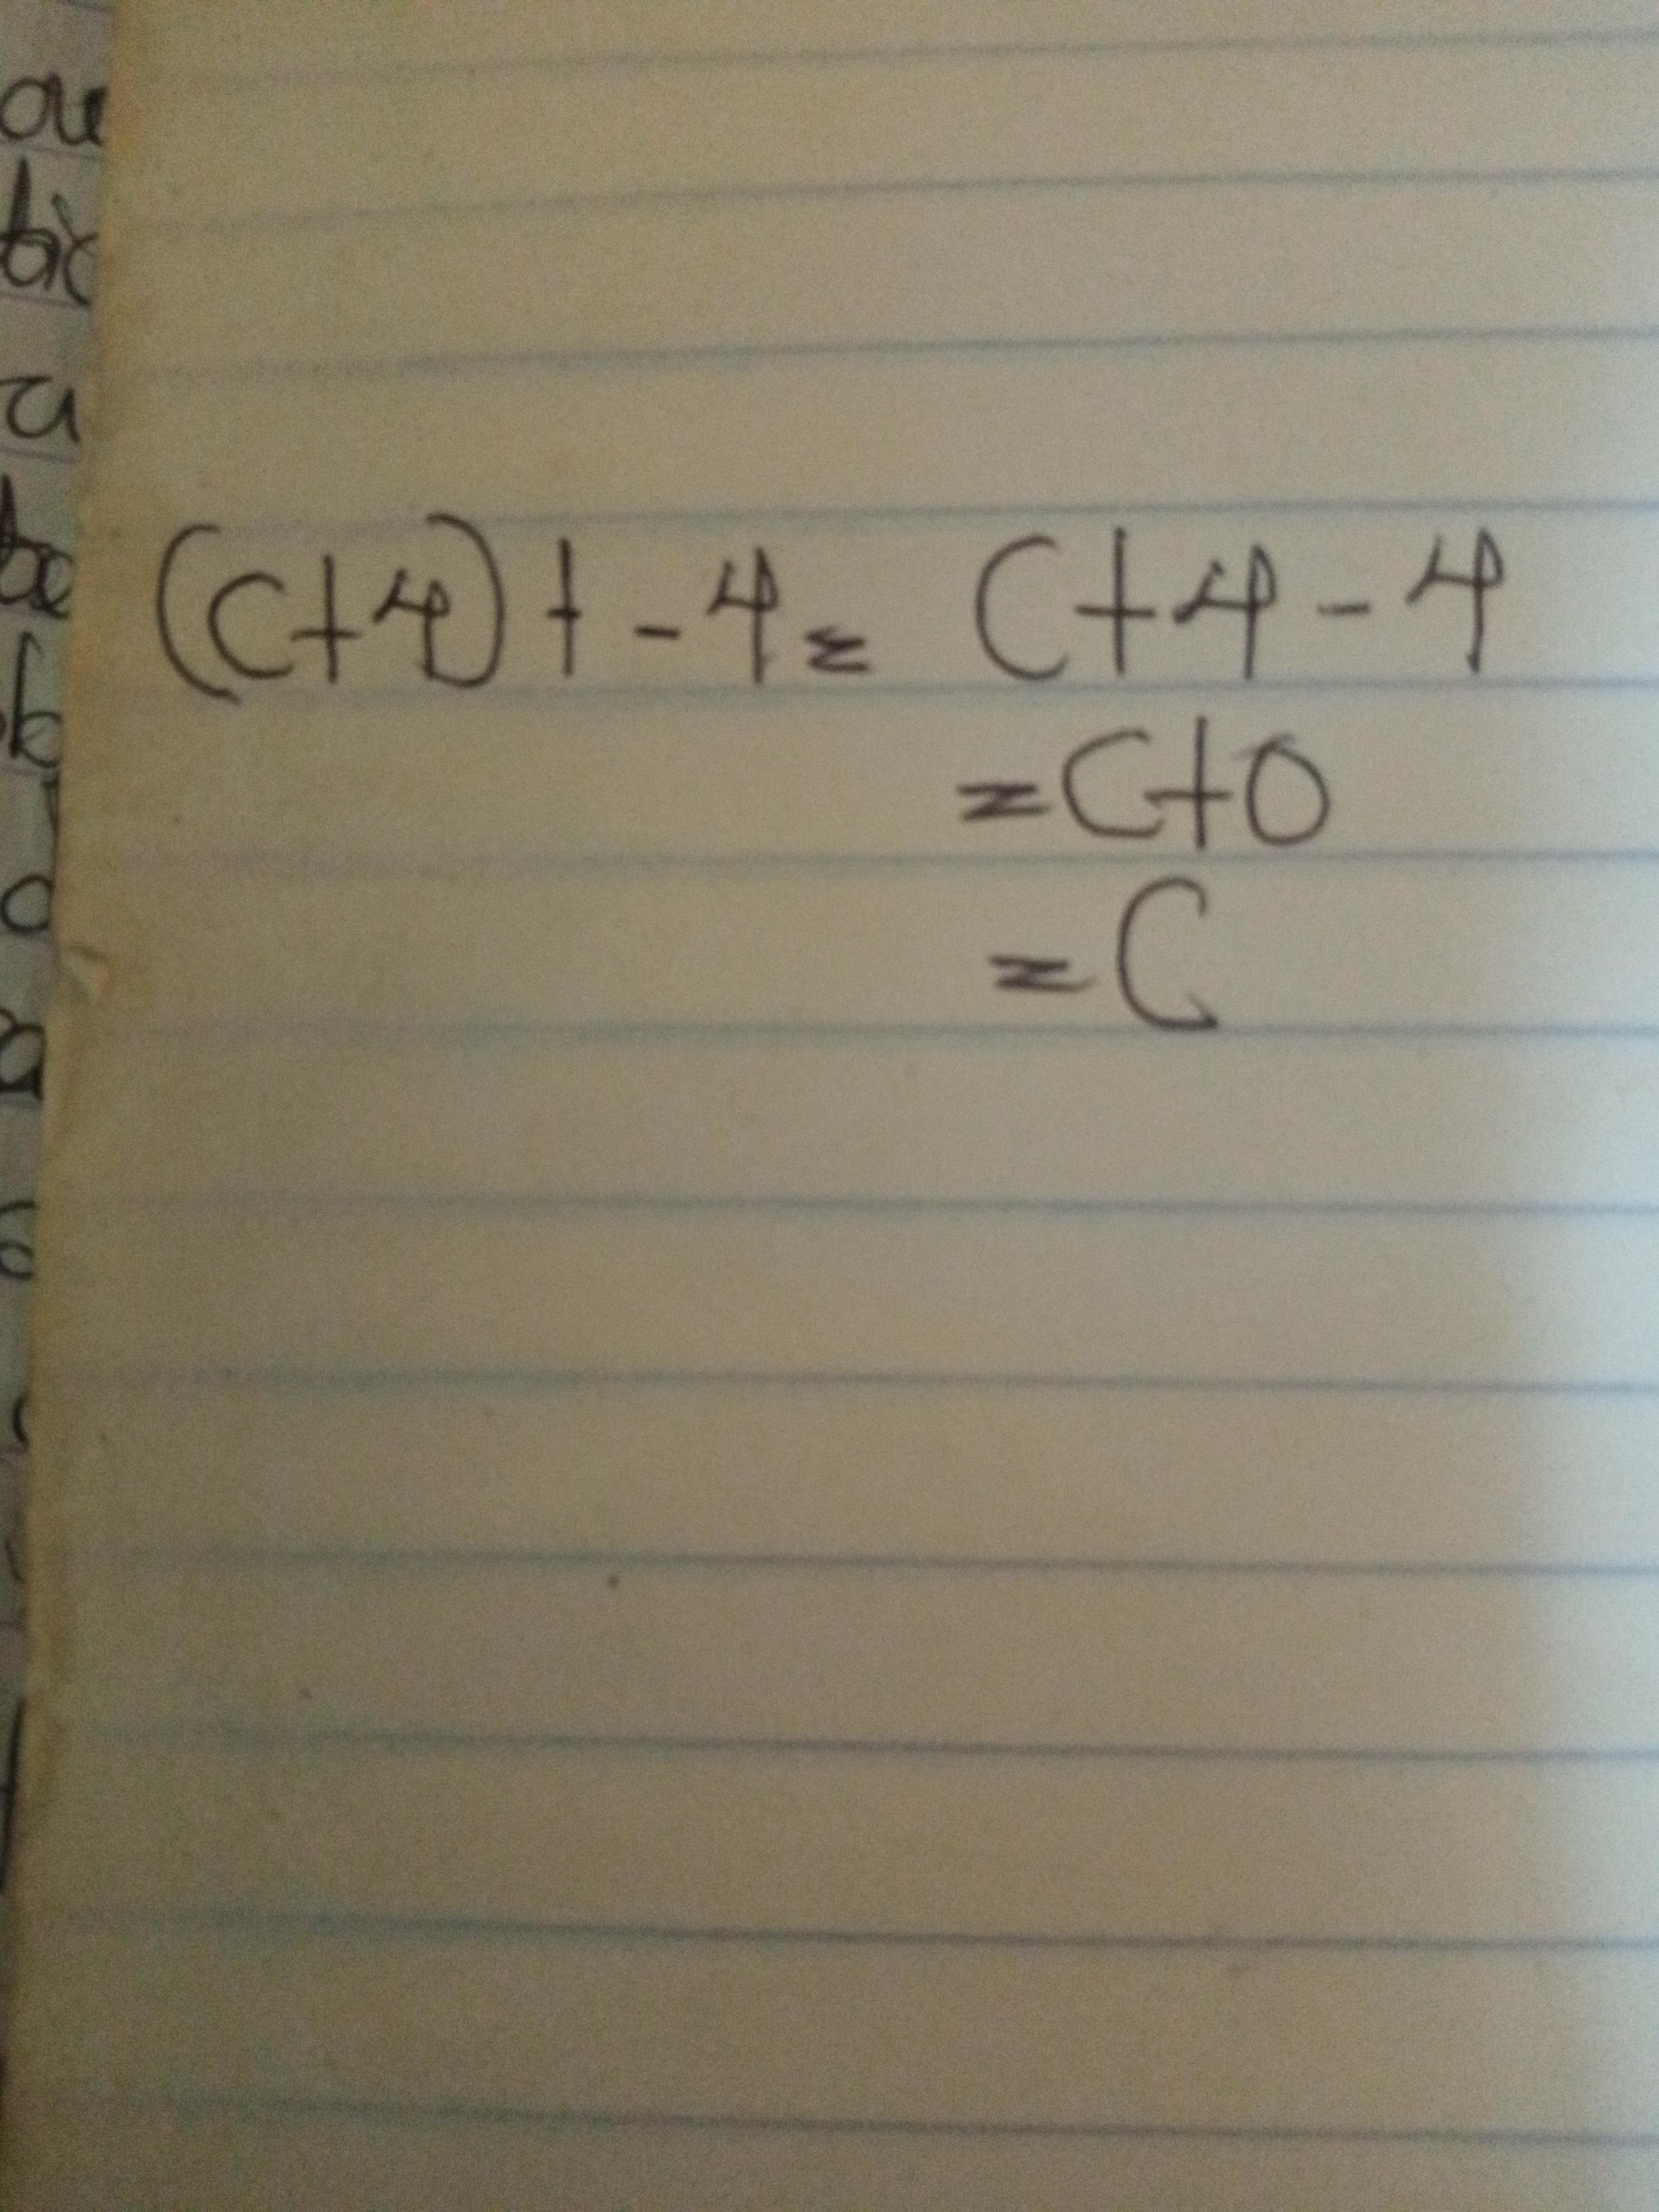 (c+4)+-4= C+4-4
=C+0
=C